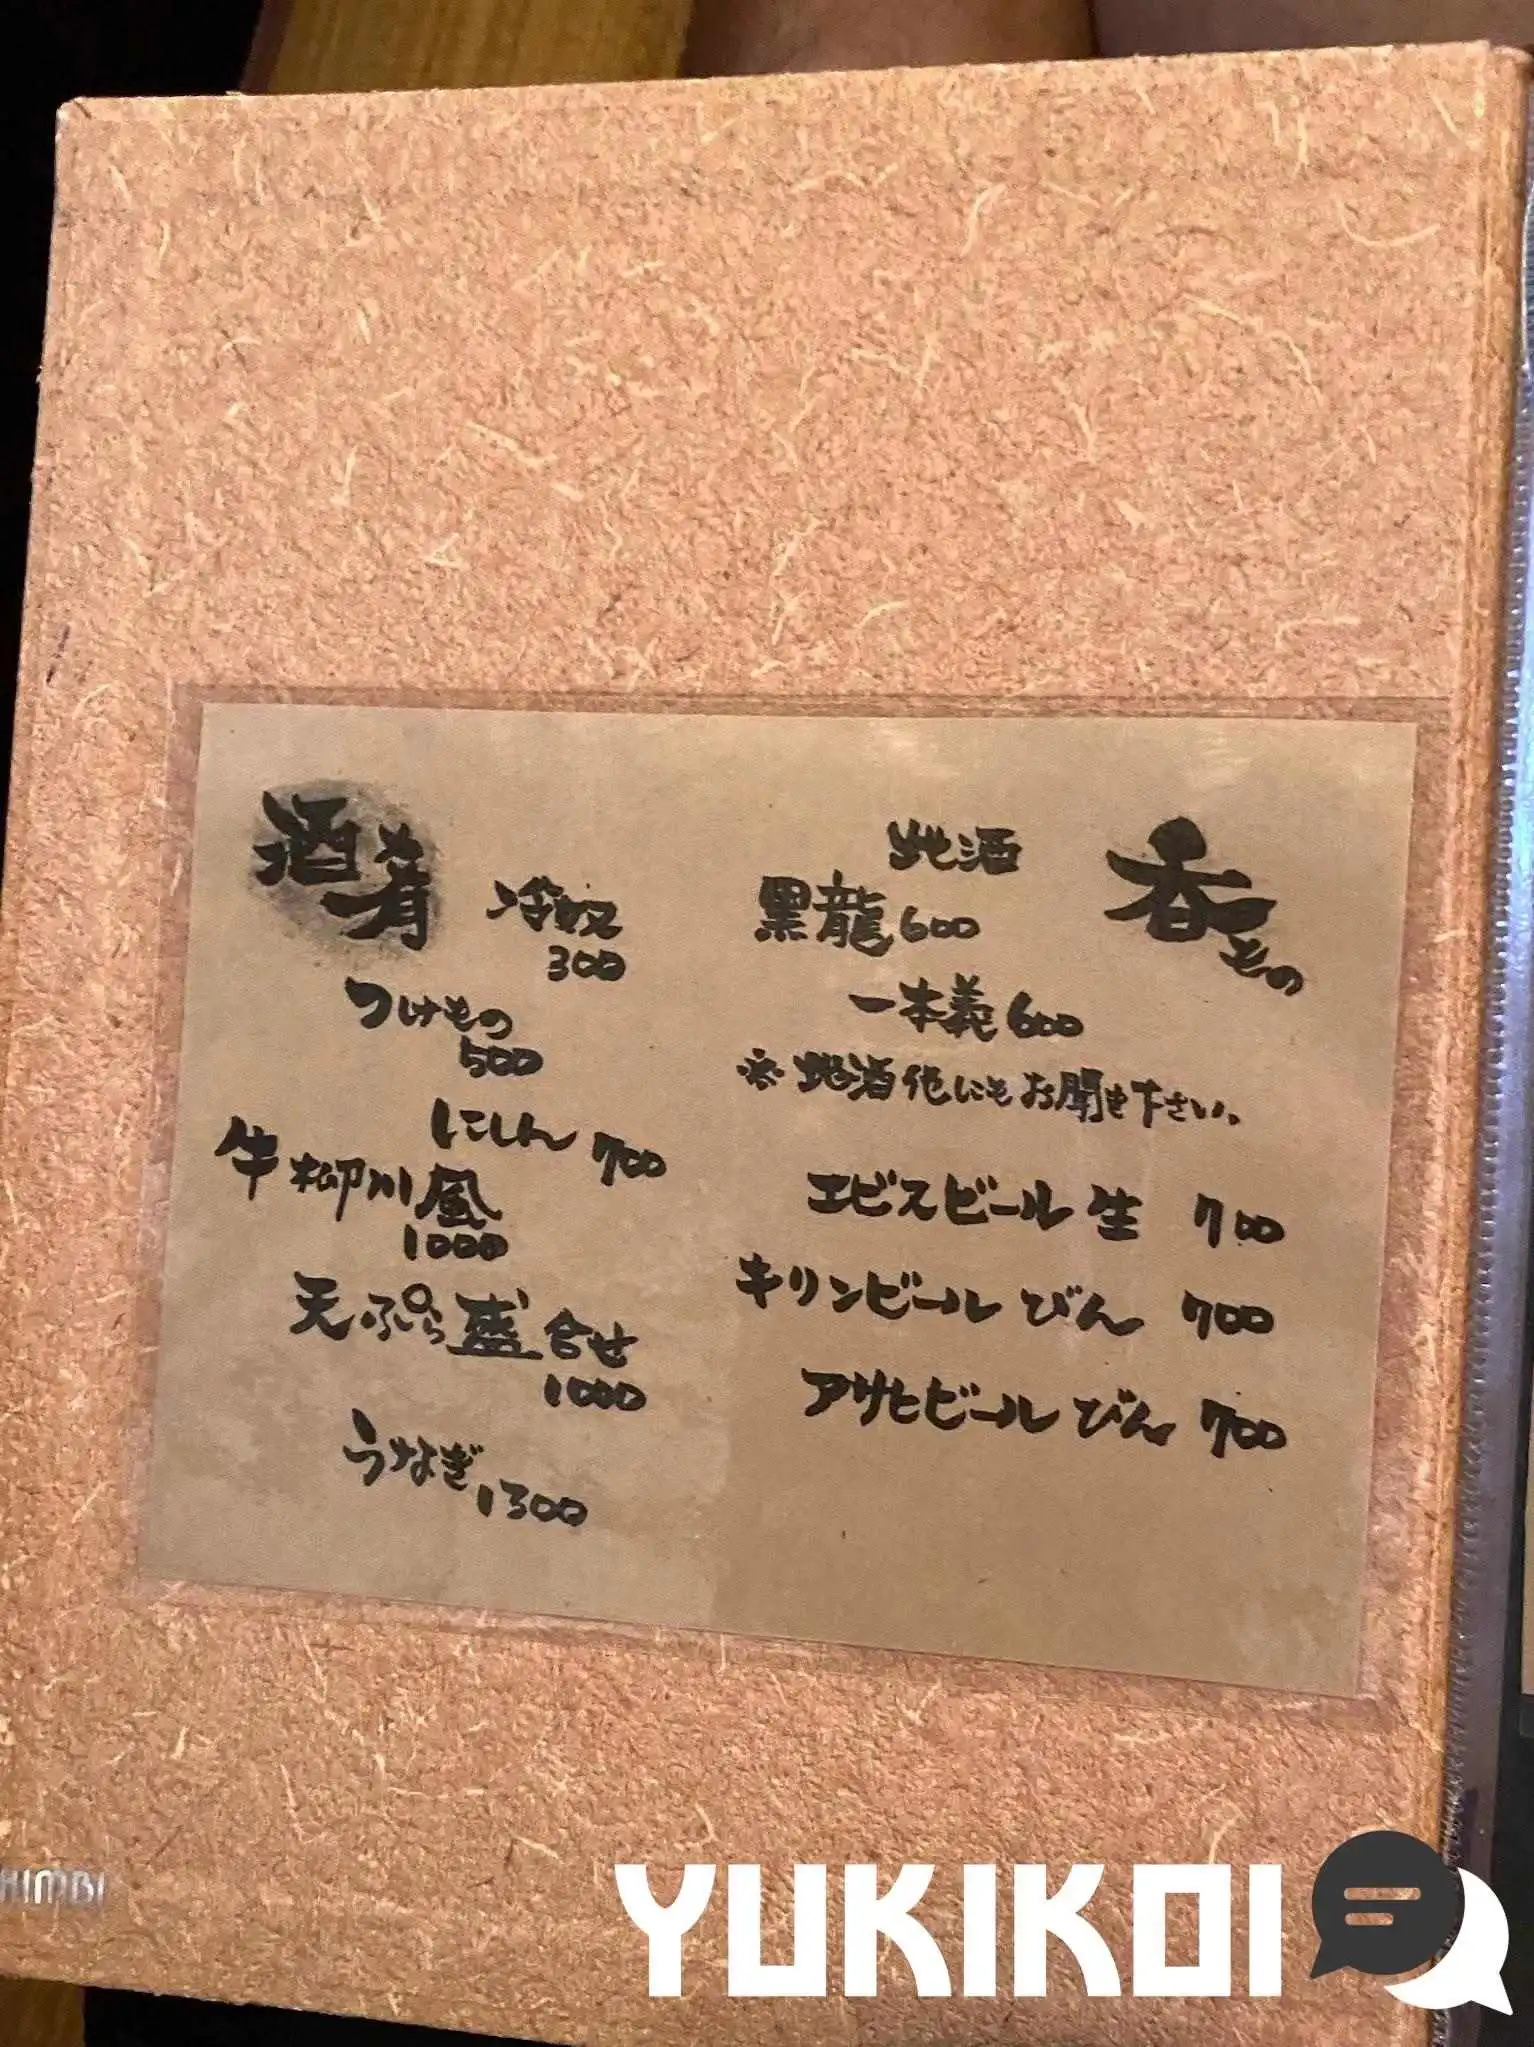 香もの
地酒
黒龍 600
一本義 600
※地酒他にもお聞き下さい。
エビスビール 生 700
キリンビール びん 700
アサヒビール びん 700
酒肴
冷奴
300
つけもの
500
にしん 700
牛柳川風
1000
天ぷら盛合せ
1000
うなぎ 1300
HIMBI
YUKIKOI